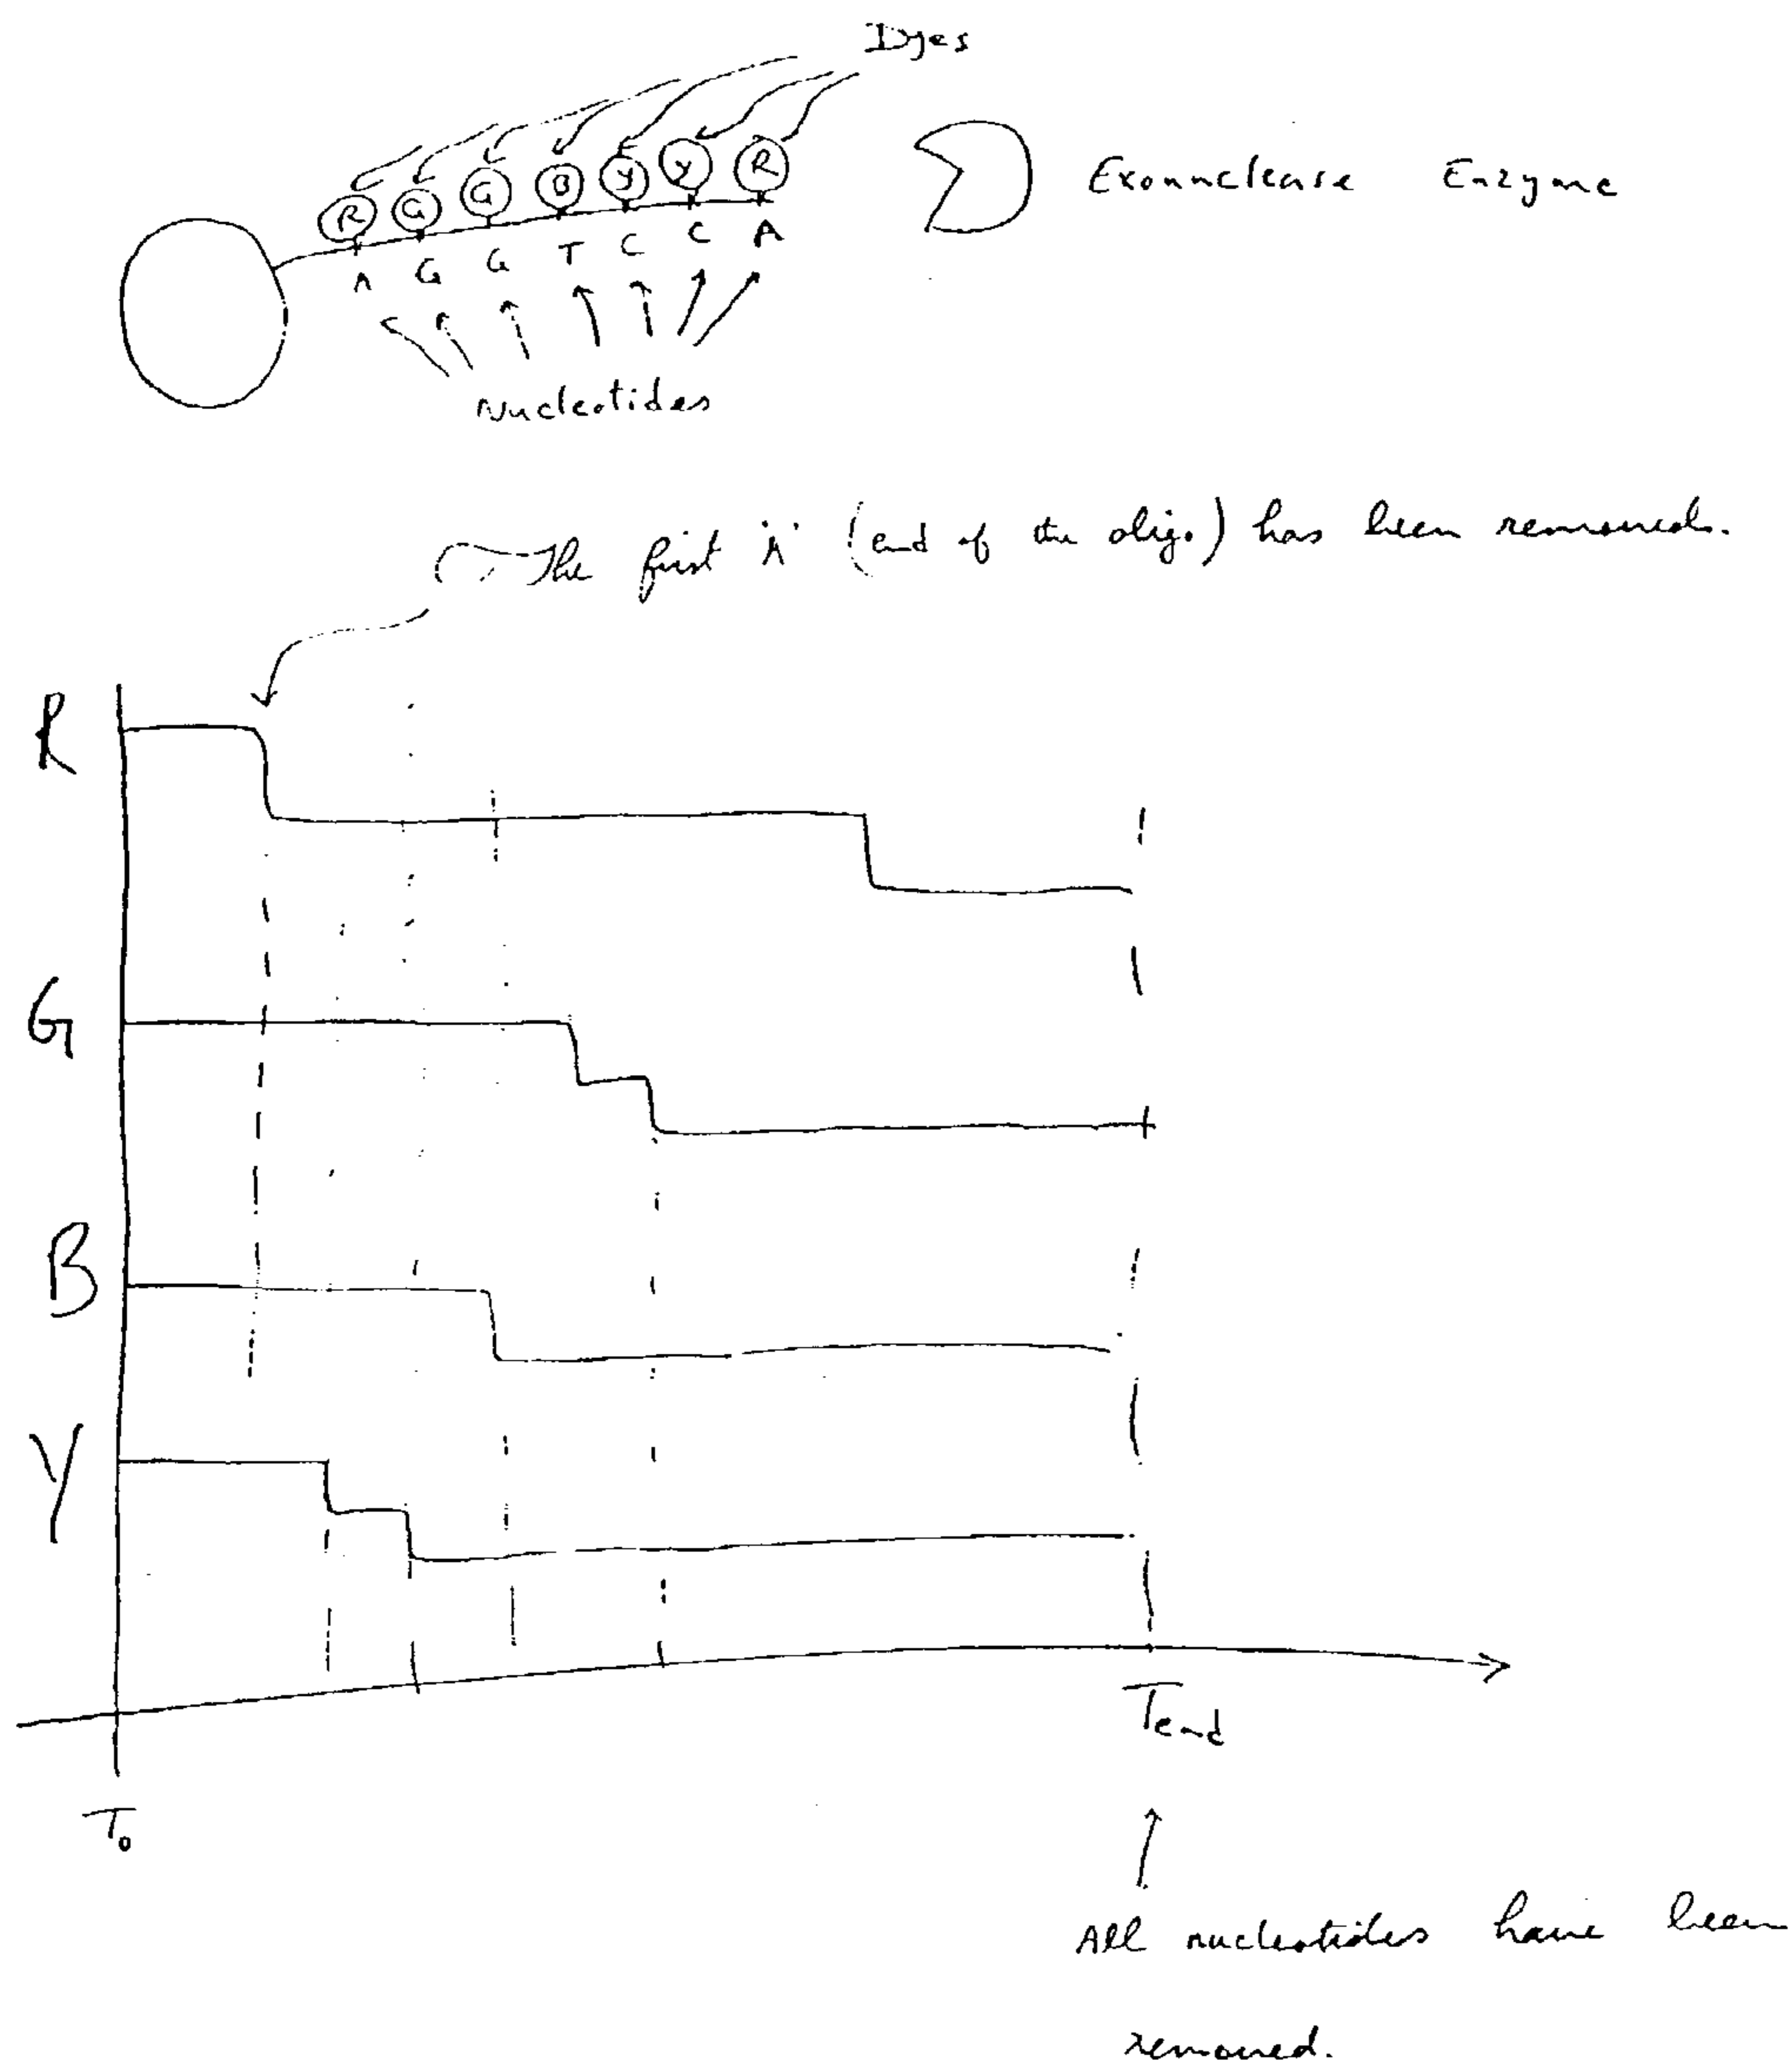 Dyes
R G G B Y Y R
Exonuclease Enzyme
A G G T C C A
Nucleotides
The first 'A' (end of the oligo) has been removed.
R
G
B
Y
Tend
T0
All nucleotides have been
removed.